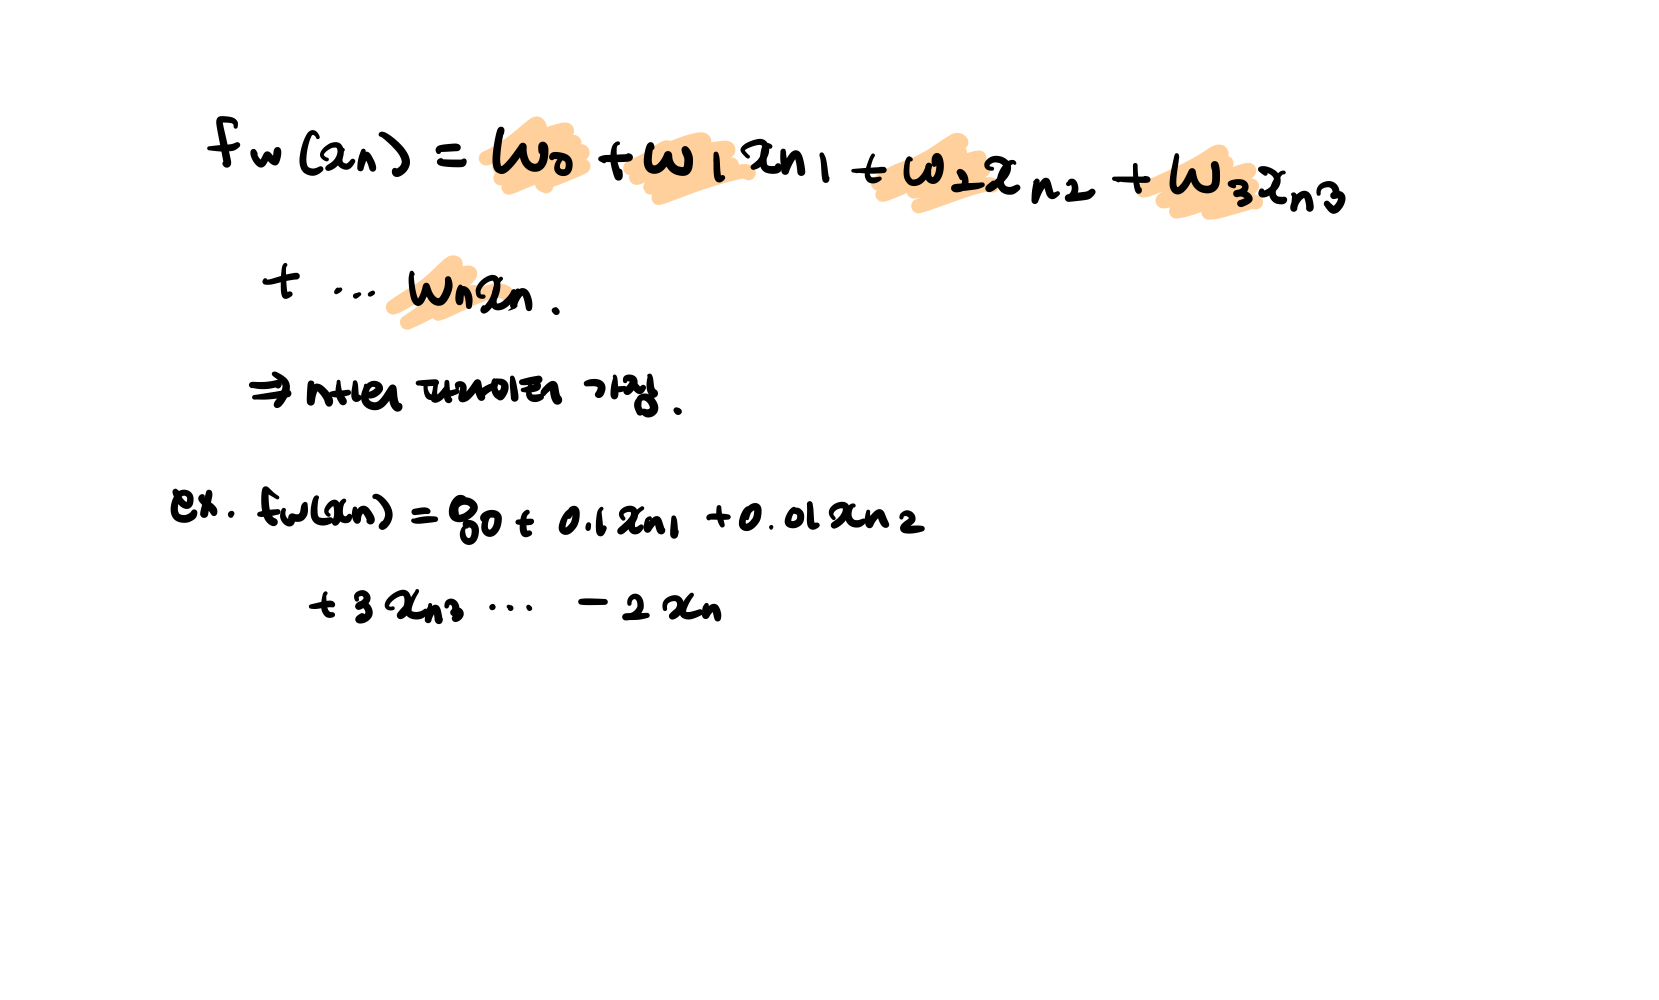 fw(xn) = w0 + w1xn1 + w2xn2 + w3xn3
+ ... wnxn.
⇒ n+1개 파라미터 가짐.
ex. fw(xn) = 80 + 0.1xn1 + 0.01xn2
+ 3xn3 ... - 2xn